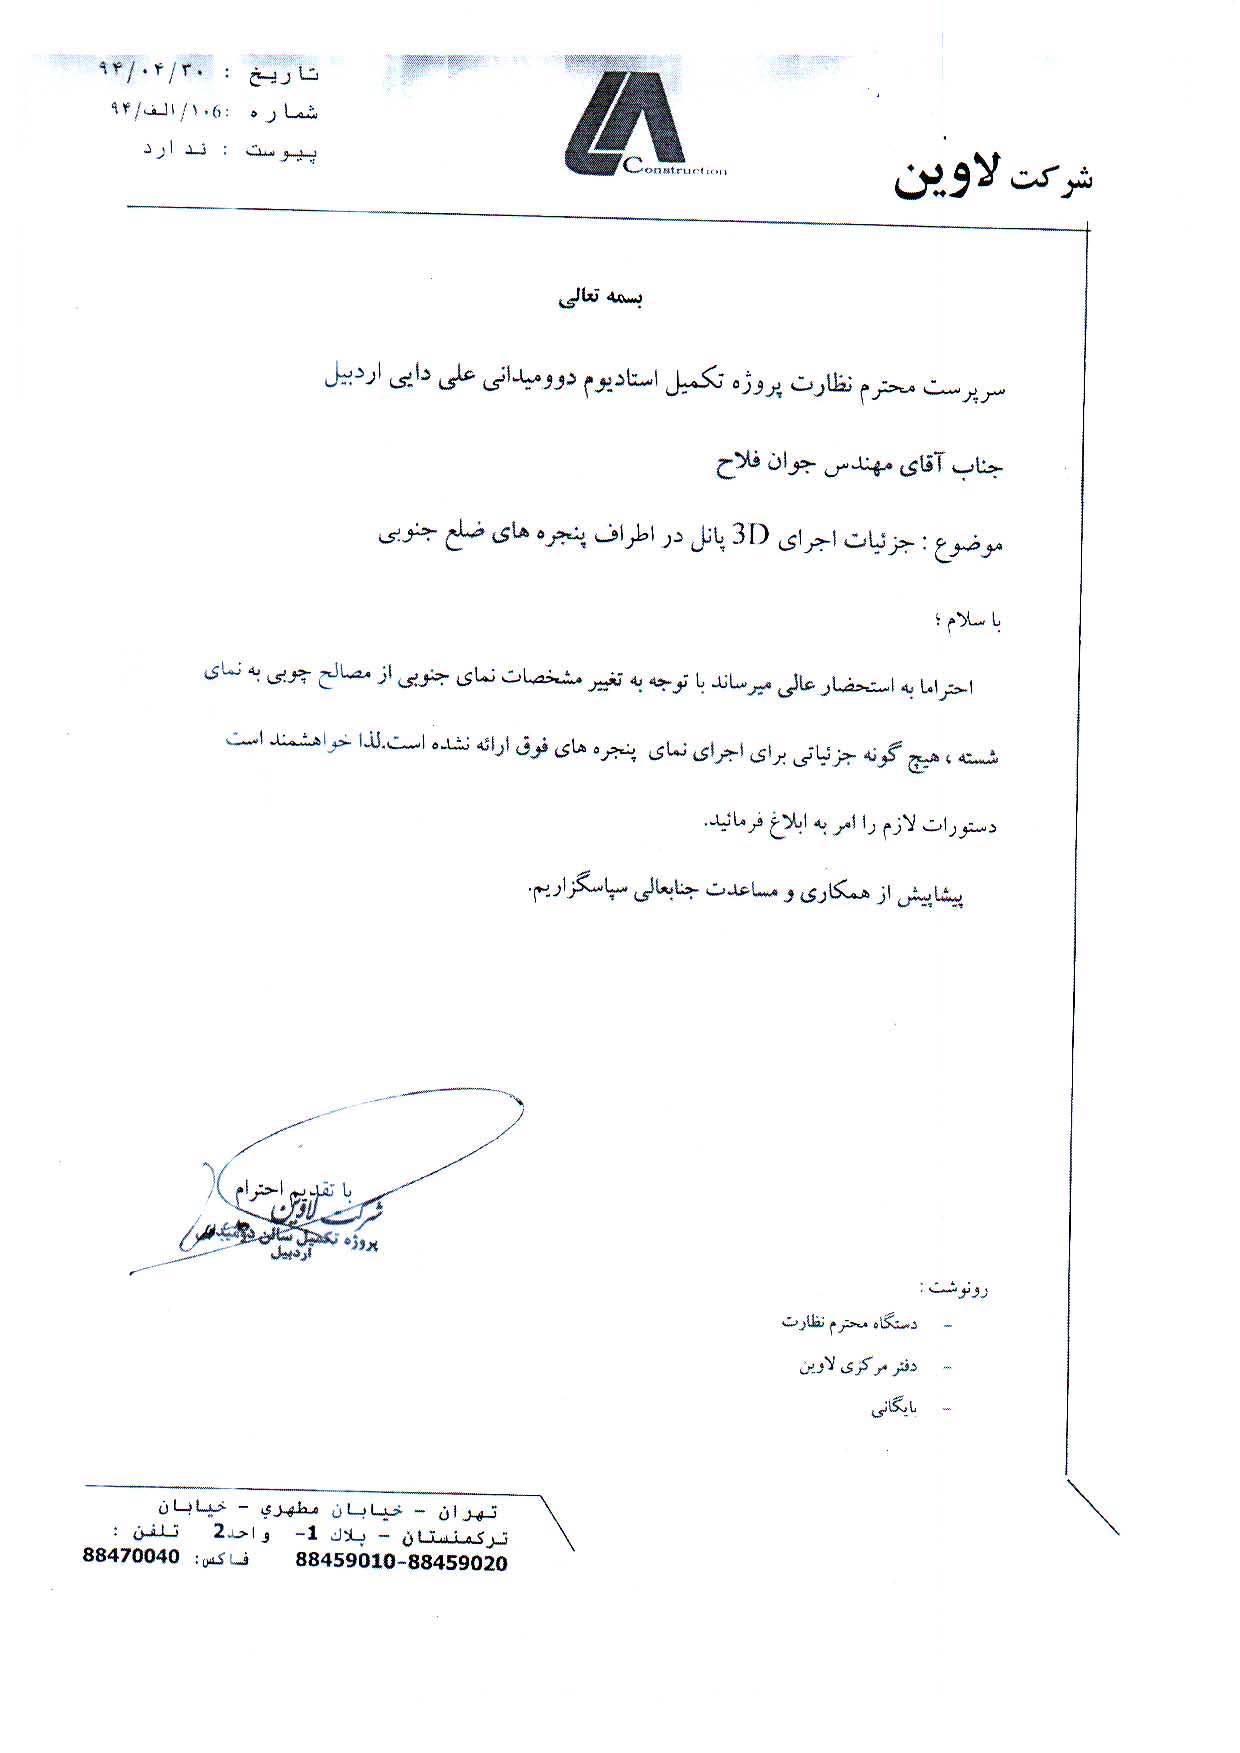 تاریخ : ۹۴/۰۴/۳۰
شماره :۱۰6/الف/۹۴
پیوست : ندارد
LA Construction
شرکت لاوین
بسمه تعالی
سرپرست محترم نظارت پروژه تکمیل استادیوم دوومیدانی علی دایی اردبیل
جناب آقای مهندس جوان فلاح
موضوع : جزئیات اجرای 3D پانل در اطراف پنجره های ضلع جنوبی
با سلام ؛
احتراما به استحضار عالی میرساند با توجه به تغییر مشخصات نمای جنوبی از مصالح چوبی به نمای
شسته ، هیچ گونه جزئیاتی برای اجرای نمای پنجره های فوق ارائه نشده است.لذا خواهشمند است
دستورات لازم را امر به ابلاغ فرمائید.
پیشاپیش از همکاری و مساعدت جنابعالی سپاسگزاریم.
با تقدیم احترام
شرکت لاوین
پروژه تکمیل سالن دومیدانی
اردبیل
رونوشت :
- دستگاه محترم نظارت
- دفتر مرکزی لاوین
- بایگانی
تهران – خیابان مطهري – خیابان
ترکمنستان – پلاك 1- واحد2 تلفن :
88459010-88459020 فاکس: 88470040